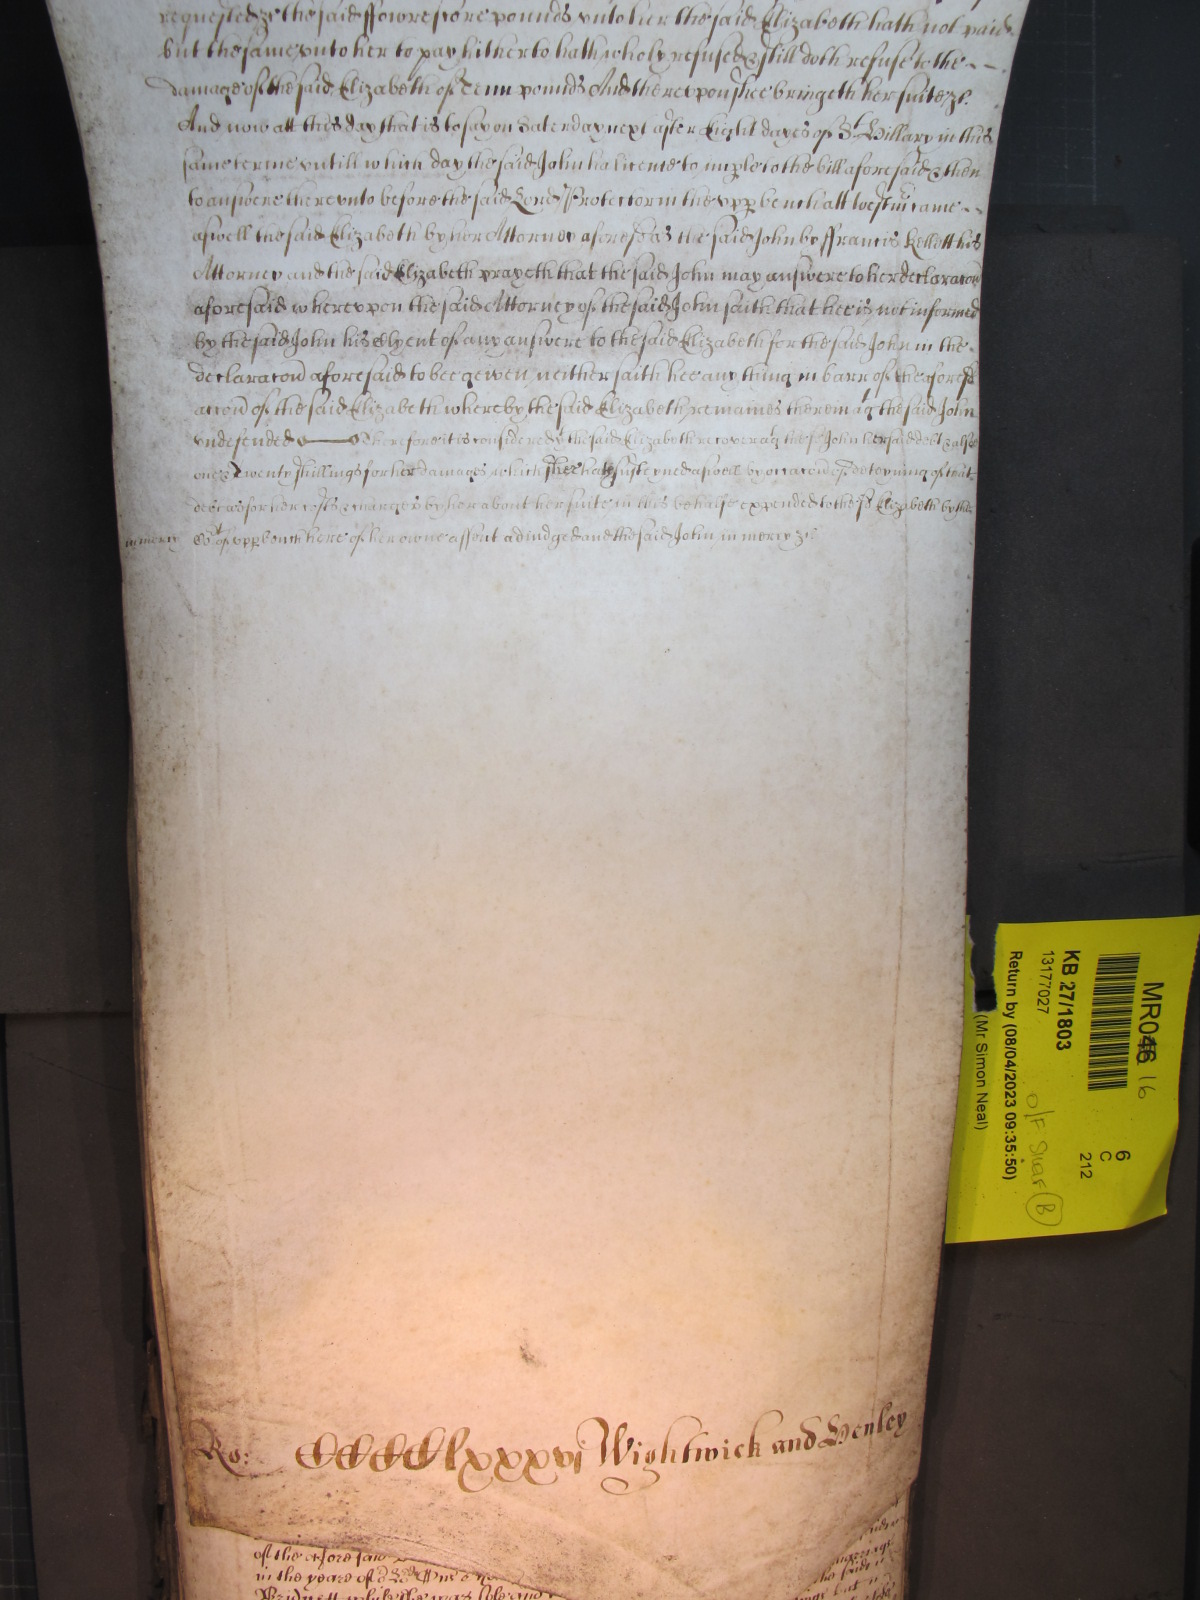 requested &c the said ffowrescore pounds vnto her the said Elizabeth hath not paid
but the same vnto her to pay hitherto hath wholy refused & still doth refuse to the
damage of the said Elizabeth of Tenn pounds And therevpon shee bringeth her suite &c.
And now att this day that is to say on Saterday next after Eight dayes of St Hillary in this
same terme vntill which day the said John ha licence to imple to the bill aforesaid & then
to answere therevnto before the said Lord Protector in the vpp bench att Westm came
aswell the said Elizabeth by her Attorney aforesd as the said John by ffrancis Kellett his
Attorney and the said Elizabeth prayeth that the said John may answere to her declaracon
aforesaid wherevpon the said Attorney of the said John saith that hee is not informed
by the said John his Clyent of any answere to the said Elizabeth for the said John in the
declaracon aforesaid to bee geven neither saith hee any thing in barr of the aforesd
accon of the said Elizabeth whereby the said Elizabeth remaines therein agt the said John
vndefended Therefore it is considered yt the said Elizabeth recover agt the sd John her said debt & alsoe
one & Twenty shillings for her damages which shee hath susteyned aswell by occacon of deteyning of that
debt as for her costs & charges by her about her suite in this behalfe expended to the sd Elizabeth by the
in mercy Cot of vpp bench here of her owne assent adiudged and the said John in mercy &c
Ro: CCCCClxxxvi Wightwick and Henley
of the aforesaid
in the yeare of
MR046 16
KB 27/1803
13177027
Return by (08/04/2023 09:35:50)
(Mr Simon Neal)
6
C
212
B